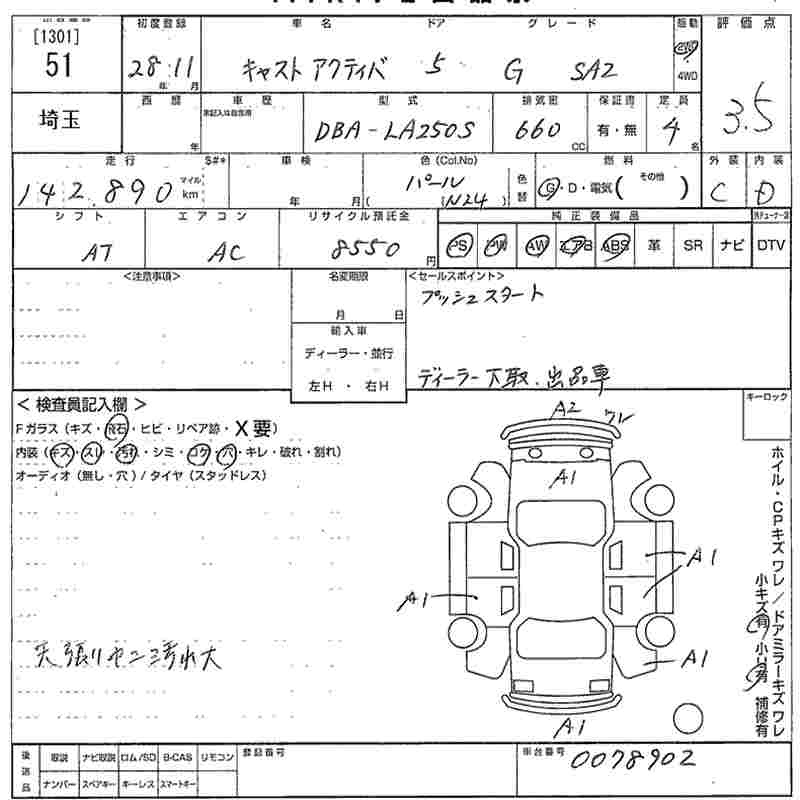 [1301]
51
初度登録
28 11
年 月
車名
キャスト アクティバ
ドア
5
グレード
G SA2
駆動
2WD
4WD
評価点
3.5
埼玉
西暦
年
車歴
未記入は自家用
型式
DBA-LA250S
排気量
660
CC
保証書
有・無
定員
4
名
走行
142,890
マイル
km
S#*
車検
年 月
色(Col.No)
パール
( [N24 )
色替
燃料
G・D・電気( その他 )
外装
C
内装
D
シフト
AT
エアコン
AC
リサイクル預託金
8550
円
純正装備品
PS PW AW エアB ABS 革 SR ナビ DTV
<注意事項>
名変期限
月 日
輸入車
ディーラー・並行
左H ・ 右H
<セールスポイント>
プッシュスタート
ディーラー下取.出品車
<検査員記入欄>
Fガラス(キズ・飛石・ヒビ・リペア跡・X要)
内装(キズ・スレ・汚れ・シミ・コゲ・穴・キレ・破れ・割れ)
オーディオ(無し・穴)/タイヤ(スタッドレス)
キーロック
A2 ワレ
A1
A1
A1
A1
A1
天張りヤニ汚れ大
ホイル・CPキズ ワレ/ドアミラーキズ ワレ
小キズ有 小U有 補修有
後送品
取説 ナビ取説 ロム/SD B-CAS リモコン
ナンバー スペアキー キーレス スマートキー
登録番号
車台番号
0078902